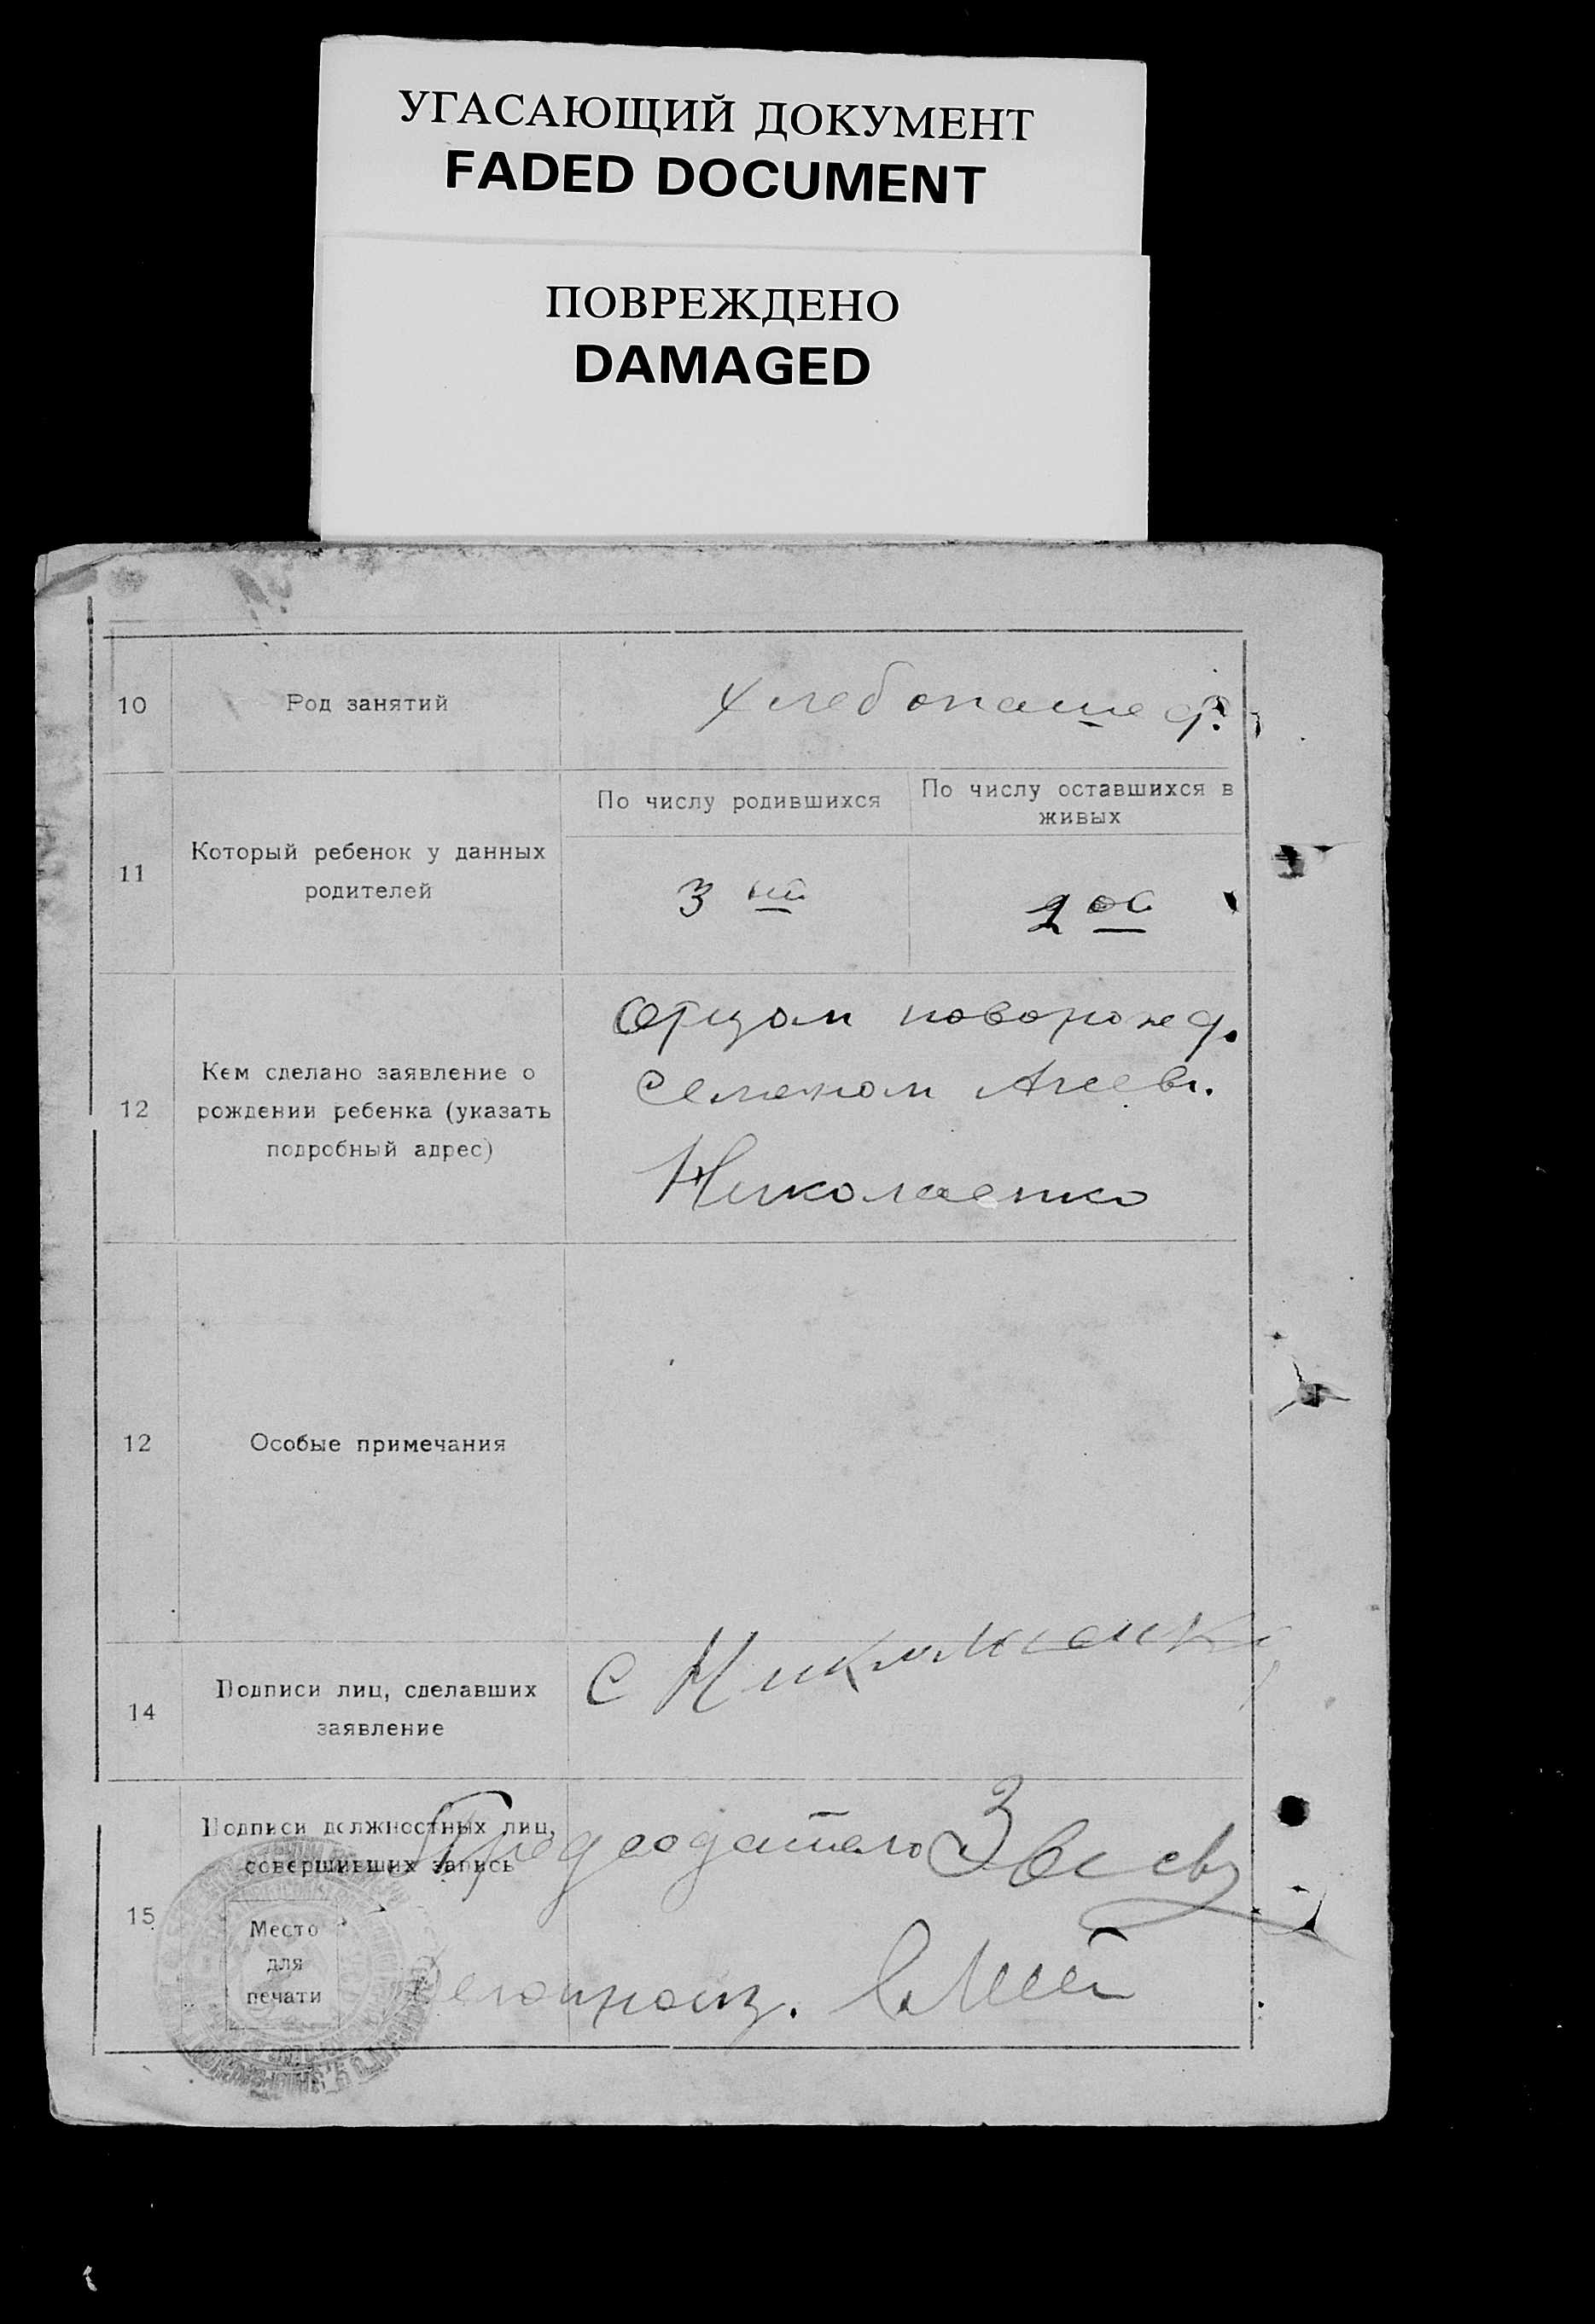 УГАСАЮЩИЙ ДОКУМЕНТ
FADED DOCUMENT
ПОВРЕЖДЕНО
DAMAGED
10
Род занятий
Хлебопашед.
11
Который ребенок у данных
родителей
По числу родившихся
По числу оставшихся в
живых
3 ий
2 ой
12
Кем сделано заявление о
рождении ребенка (указать
подробный адрес)
Отцом наворожд.
Семеном Агеев.
Николаенко
12
Особые примечания
14
Подписи лиц, сделавших
заявление
С Николаенко
15
Подписи должностных лиц,
совершивших запись
Место
для
печати
Председатель
Делопроиз.